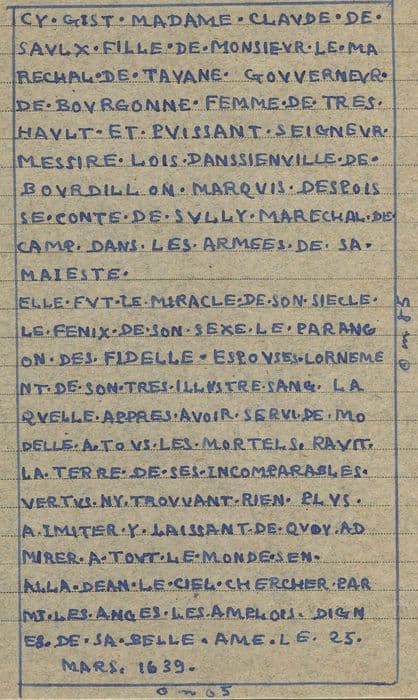 CY·GIST·MADAME·CLAVDE·DE·
SAVLX·FILLE·DE·MONSIEVR·LE·MA
RECHAL·DE·TAVANE·GOVVERNEVR·
DE·BOVRGONNE·FEMME·DE·TRES·
HAVLT·ET·PVISSANT·SEIGNEVR·
MESSIRE·LOIS·DANSSIENVILLE·DE·
BOVRDILLON·MARQVIS·DESPOIS
SE·CONTE·DE·SVLLY·MARECHAL·DE
CAMP·DANS·LES·ARMEES·DE·SA·
MAIESTE·
ELLE·FVT·LE·MIRACLE·DE·SON·SIECLE·
LE·FENIX·DE·SON·SEXE·LE·PARANG
ON·DES·FIDELLE·ESPOVSES·LORNEME
NT·DE·SON·TRES·ILLVSTRE·SANG·LA
QVELLE·APPRES·AVOIR·SERVI·DE·MO
DELLE·A·TOVS·LES·MORTELS·RAVIT·
LA·TERRE·DE·SES·INCOMPARABLES·
VERTVS·NY·TROVVANT·RIEN·PLVS·
A·IMITER·Y·LAISSANT·DE·QVOY·AD
MIRER·A·TOVT·LE·MONDE·SEN·
ALLA·DEAN·LE·CIEL·CHERCHER·PAR
MI·LES·ANGES·LES·AMPLOIS·DIGN
ES·DE·SA·BELLE·AME·LE·25·
MARS·1639·
0m85
0m05